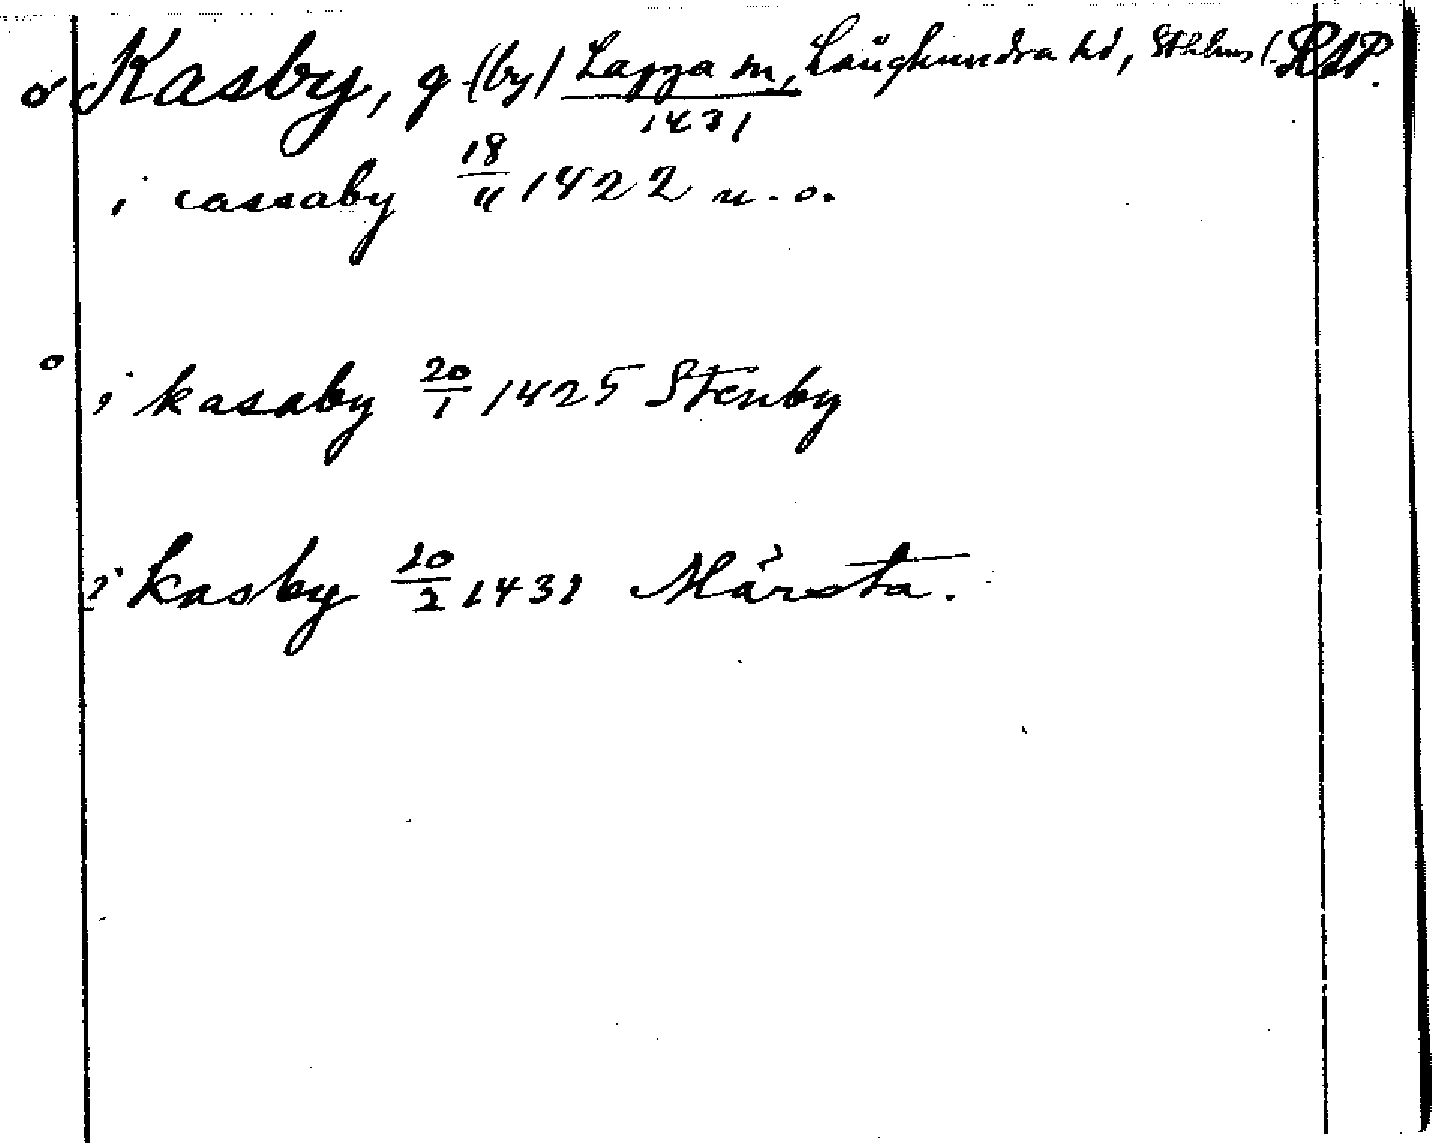 o Kasby, g (by) Lagga sn, Långhundra hd, Sthlms l. RAP.
1431
i cassaby 18/11 1422 u. o.
o i kasaby 20/1 1425 Stenby
i kasby 20/2 1431 Märsta.